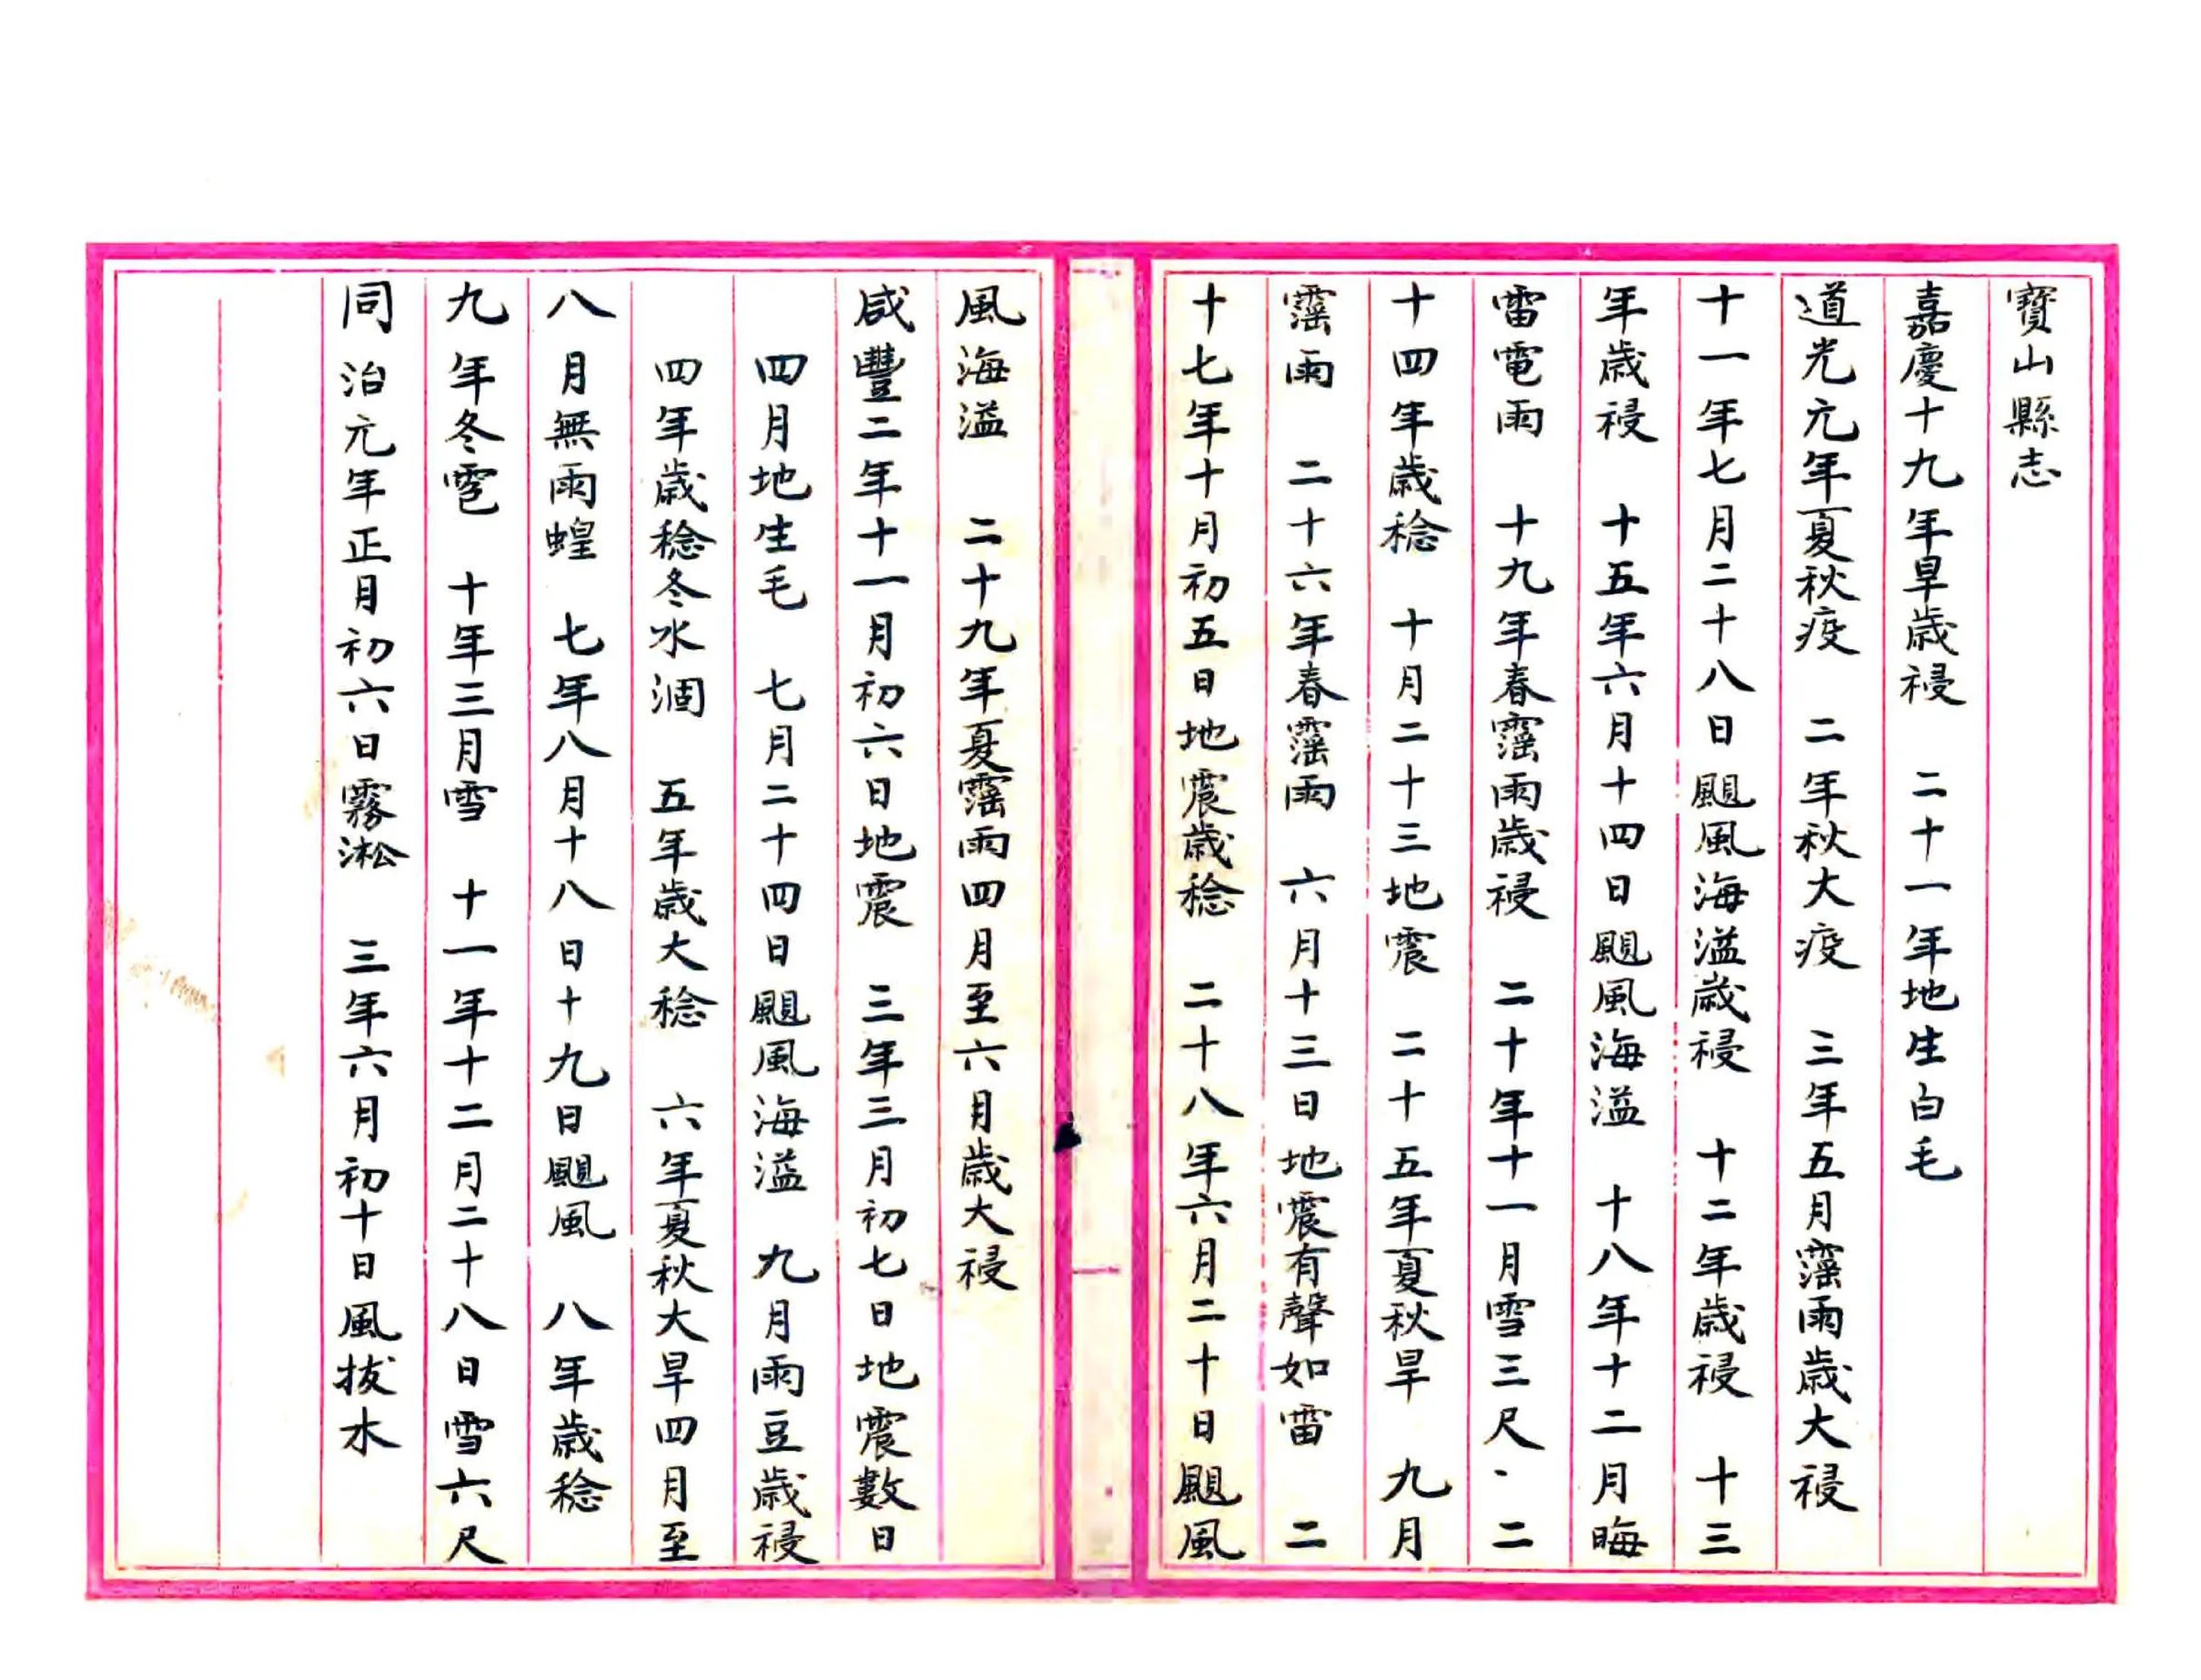 寶山縣志
嘉慶十九年旱歲祲　二十一年地生白毛
道光元年夏秋疫　二年秋大疫　三年五月霪雨歲大祲
十一年七月二十八日颶風海溢歲祲　十二年歲祲　十三
年歲祲　十五年六月十四日颶風海溢　十八年十二月晦
雷電雨　十九年春霪雨歲祲　二十年十一月雪三尺、二
十四年歲稔　十月二十三地震　二十五年夏秋旱　九月
霪雨　二十六年春霪雨　六月十三日地震有聲如雷　二
十七年十月初五日地震歲稔　二十八年六月二十日颶風
風海溢　二十九年夏霪雨四月至六月歲大祲
咸豐二年十一月初六日地震　三年三月初七日地震數日
四月地生毛　七月二十四日颶風海溢　九月雨豆歲祲
四年歲稔冬水涸　五年歲大稔　六年夏秋大旱四月至
八月無雨蝗　七年八月十八日十九日颶風　八年歲稔
九年冬雹　十年三月雪　十一年十二月二十八日雪六尺
同治元年正月初六日霧淞　三年六月初十日風拔木